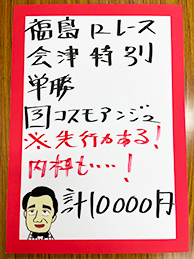 福島12レース
会津特別
単勝
③コスモアンジュ
※先行力ある!
内枠も…!
計10000円